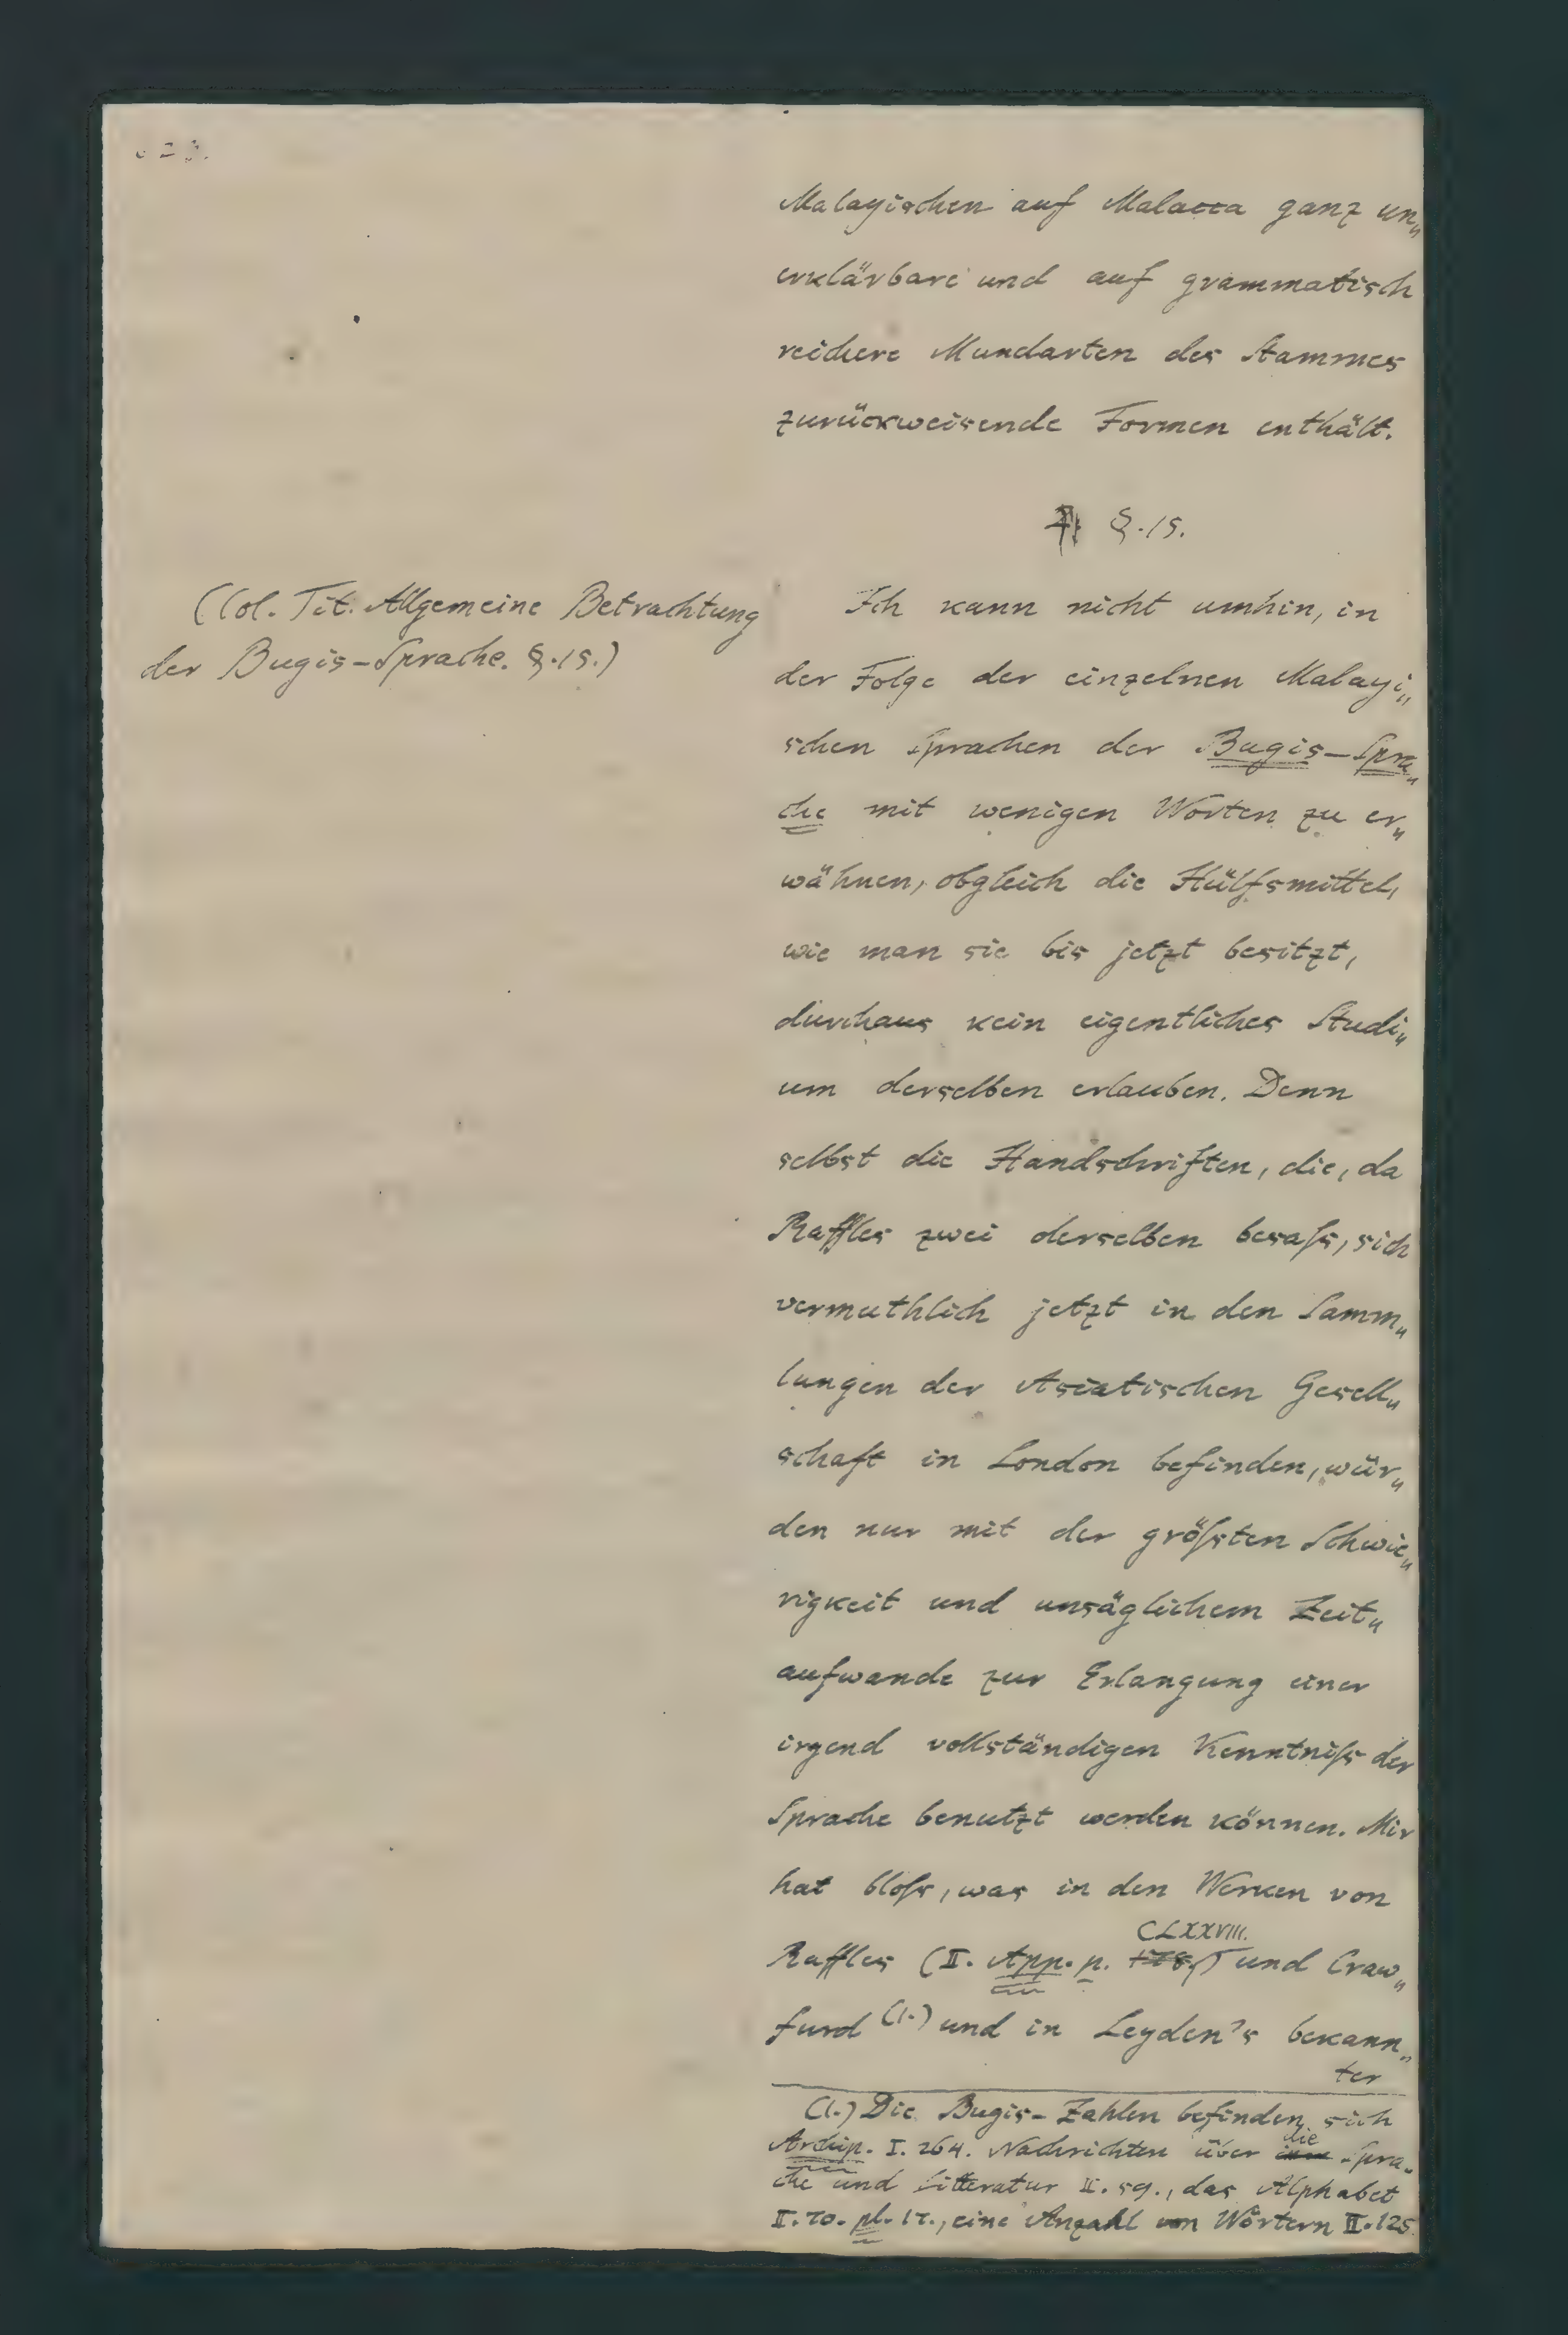 Malagischen auf Malacca ganz un„
erklärbare und auf grammatisch
reichere Mundarten des Stammes
zurückweisende Formen enthält.
§. 15.
(Col. Tit. Allgemeine Betrachtung
der Bugis-Sprache. §. 15.)
Ich kann nicht umhin, in
der Folge der einzelnen Malayi„
schen Sprachen der Bugis-Spra„
che mit wenigen Worten zu er„
wähnen, obgleich die Hülfsmittel,
wie man sie bis jetzt besitzt,
durchaus kein eigentliches Studi„
um derselben erlauben. Denn
selbst die Handschriften, die, da
Raffles zwei derselben besaſs, sich
vermuthlich jetzt in den Samm„
lungen der Asiatischen Gesell„
schaft in London befinden, wür„
den nur mit der gröſsten Schwie„
rigkeit und unsäglichem Zeit„
aufwande zur Erlangung einer
irgend vollständigen Kenntniſs der
Sprache benutzt werden können. Mir
hat bloſs, was in den Werken von
CLXXVIII.
Raffles (II. App. p. 178.) und Craw„
furd (1.) und in Leyden's bekann„
ter
(1.) Die Bugis-Zahlen befinden sich
die
Archip. I. 264. Nachrichten über Spra„
che und Litteratur II. 59., das Alphabet
II. 70. pl. 17., eine Anzahl von Wörtern II. 125